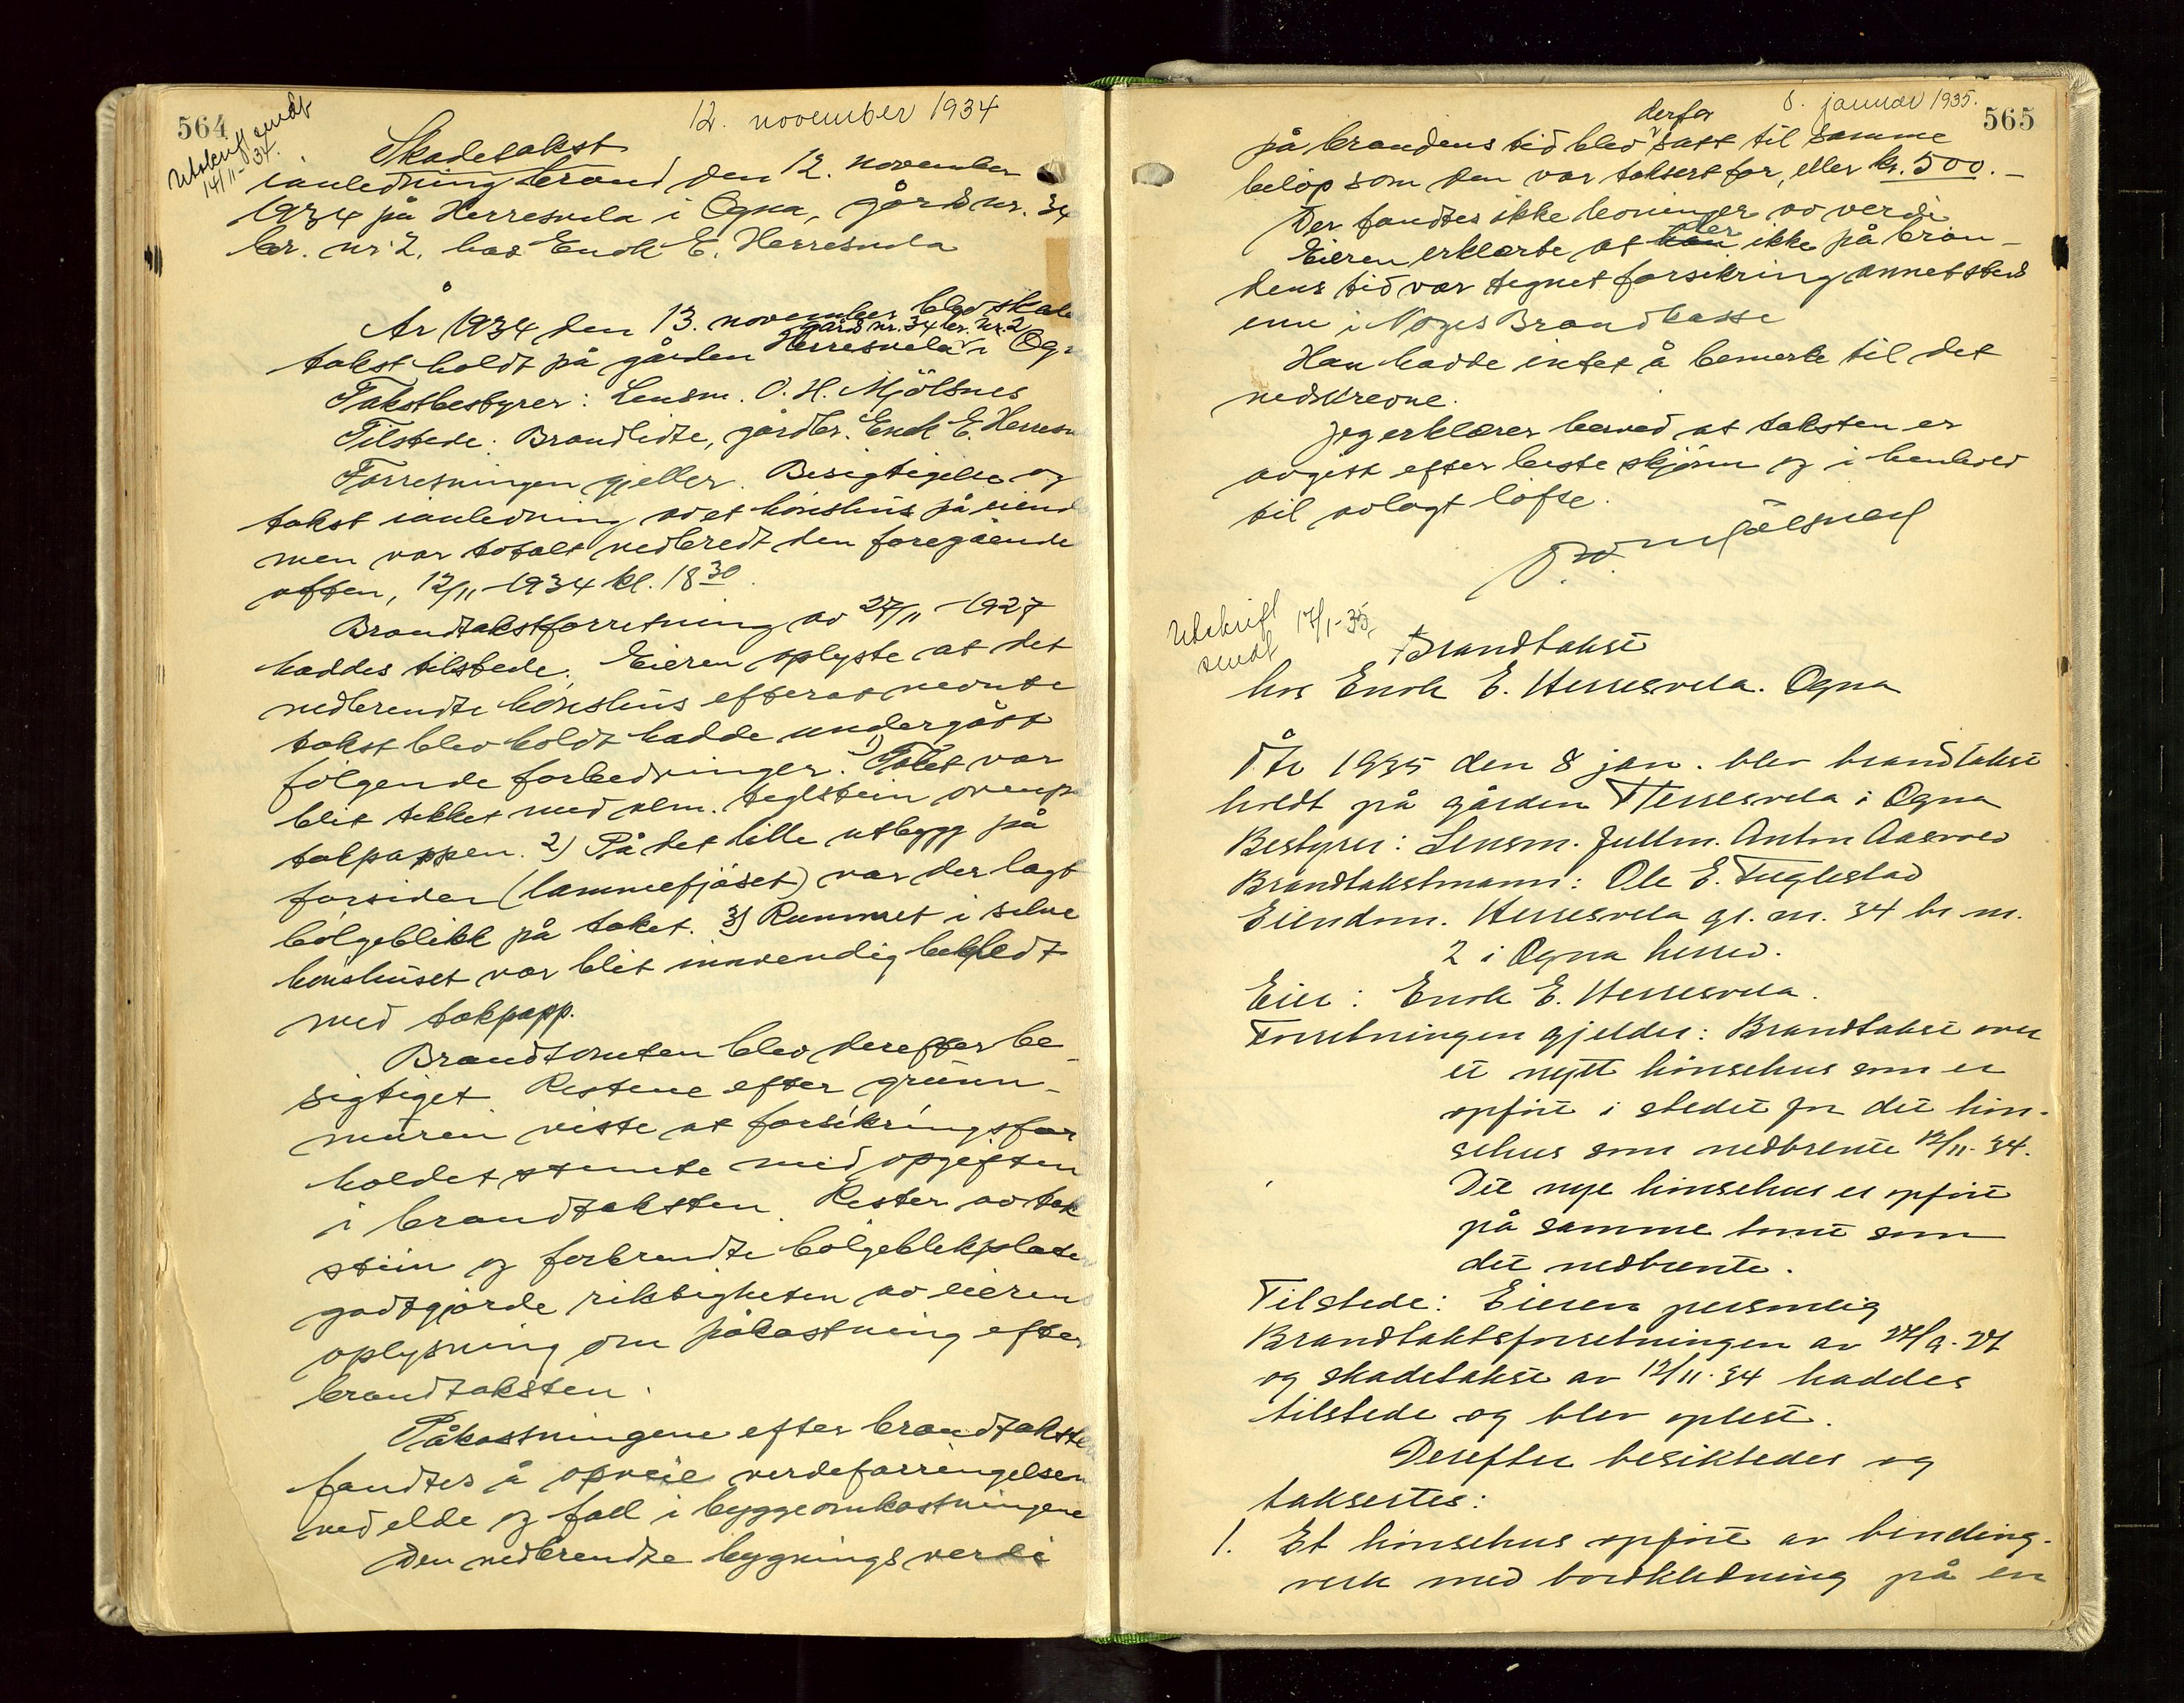 564
12. november 1934
Utskrift sendt
14/11-34.
Skadetakst
i anledning brand den 12. november
1934 på Herresvela i Ogna, gårds nr. 34
br. nr 2. hos Enok E. Herresvela
År 1934 den 13. november blev skade
gårds nr. 34 br. nr. 2
takst holdt på gården Herresvela i Ogn
Takstbestyrer: Lensm. O. H. Mjölsnes
Tilstede: Brandlidte, gårdbr. Enok E. Herresv
Forretningen gjeller. Besigtigelse og
takst i anledning av et hönshus på eiendo
men var totalt nedbrendt den foregående
aften, 12/11-1934 kl. 18 30.
Brandtakstforretning av 27/11-1927
haddes tilstede. Eieren oplyste at det
nedbrendte hönshus efterat nevnte
takst blev holdt hadde undergått
fölgende forbedringer: 1) Taket var
blit tekket med alm. teglstein ovenpå
takpappen. 2) På det lille utbygg på
forsiden (lammefjöset) var der lagt
bölgeblikk på taket. 3) Rummet i selve
hönshuset var blit innvendig bekledt
med takpapp.
Brandtomten blev derefter be-
sigtiget. Restene efter grunn-
muren viste at forsikringsfor
holdet stemte med opgiften
i brandtaksten. Rester av tak
stein og forbrendte bölgeblekplater
godtgjorde riktigheten av eierens
oplysning om påkostning efter
brandtaksten.
Påkostningene efter brandtaksten
fandtes å opveie verdeforringelsen
ved elde og fall i byggeomkostningene
Den nedbrendte bygnings verdi
8. januar 1935.
565
derfor
på brandens tid blev satt til samme
belöp som den var taksert for, eller kr. 500.-
Der fandtes ikke levninger av verdi
der
Eieren erklærte at han ikke på bran-
dens tid var tegnet forsikring annetsteds
enn i Norges Brandkasse
Han hadde intet å bemerke til det
nedskrevne.
Jeg erklærer herved at taksten er
avgitt efter beste skjönn og i henhold
til avlagt löfte.
O. H. Mjölsnes
Utskrift
sendt 17/1-35.
Brandtakst
hos Enok E. Herresvela. Ogna
År 1935 den 8 jan. blev brandtakst
holdt på gården Herresvela i Ogna
Bestyrer: Lensm. fullm. Anton Aasvold
Brandtakstmann: Ole E. Fuglestad
Eiendom. Herresvela gr. nr. 34 br. nr.
2 i Ogna herred.
Eier: Enok E. Herresvela.
Forretningen gjelder: Brandtakst over
et nytt hönsehus som er
opfört i stedet for det hön-
sehus som nedbrente 12/11-34.
Det nye hönsehus er opfört
på samme tomt som
det nedbrente.
Tilstede: Eieren personlig
Brandtakstforretningen av 27/9-27
og skadetakst av 12/11-34 haddes
tilstede og blev oplest.
Derefter besiktedes og
taksertes:
1. Et hönsehus opfört av binding-
verk med bordkledning på en